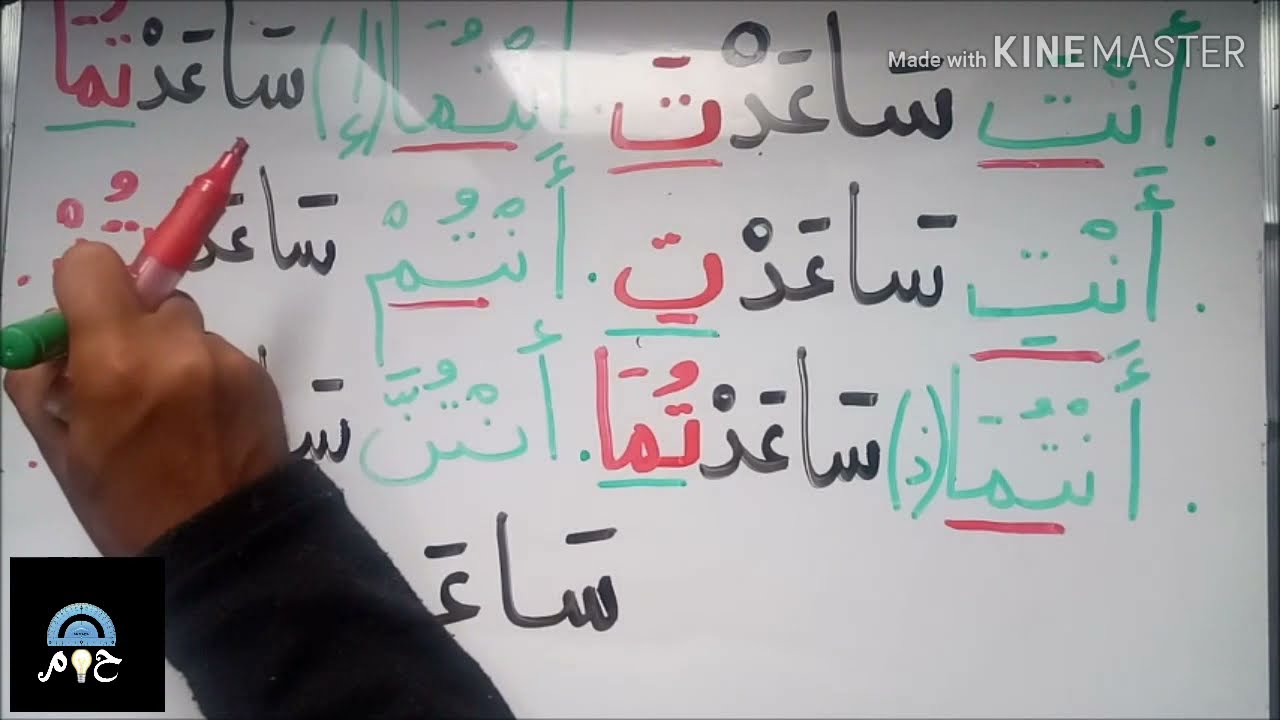 Made with KINEMASTER
. أَنْتَ سَاعَدْتَ . أَنْتُمَا (إ) سَاعَدْتُمَا
. أَنْتِ سَاعَدْتِ . أَنْتُمْ سَاعَد
. أَنْتُمَا (ذ) سَاعَدْتُمَا . أَنْتُنَّ سَا
سَاعَ
ح م